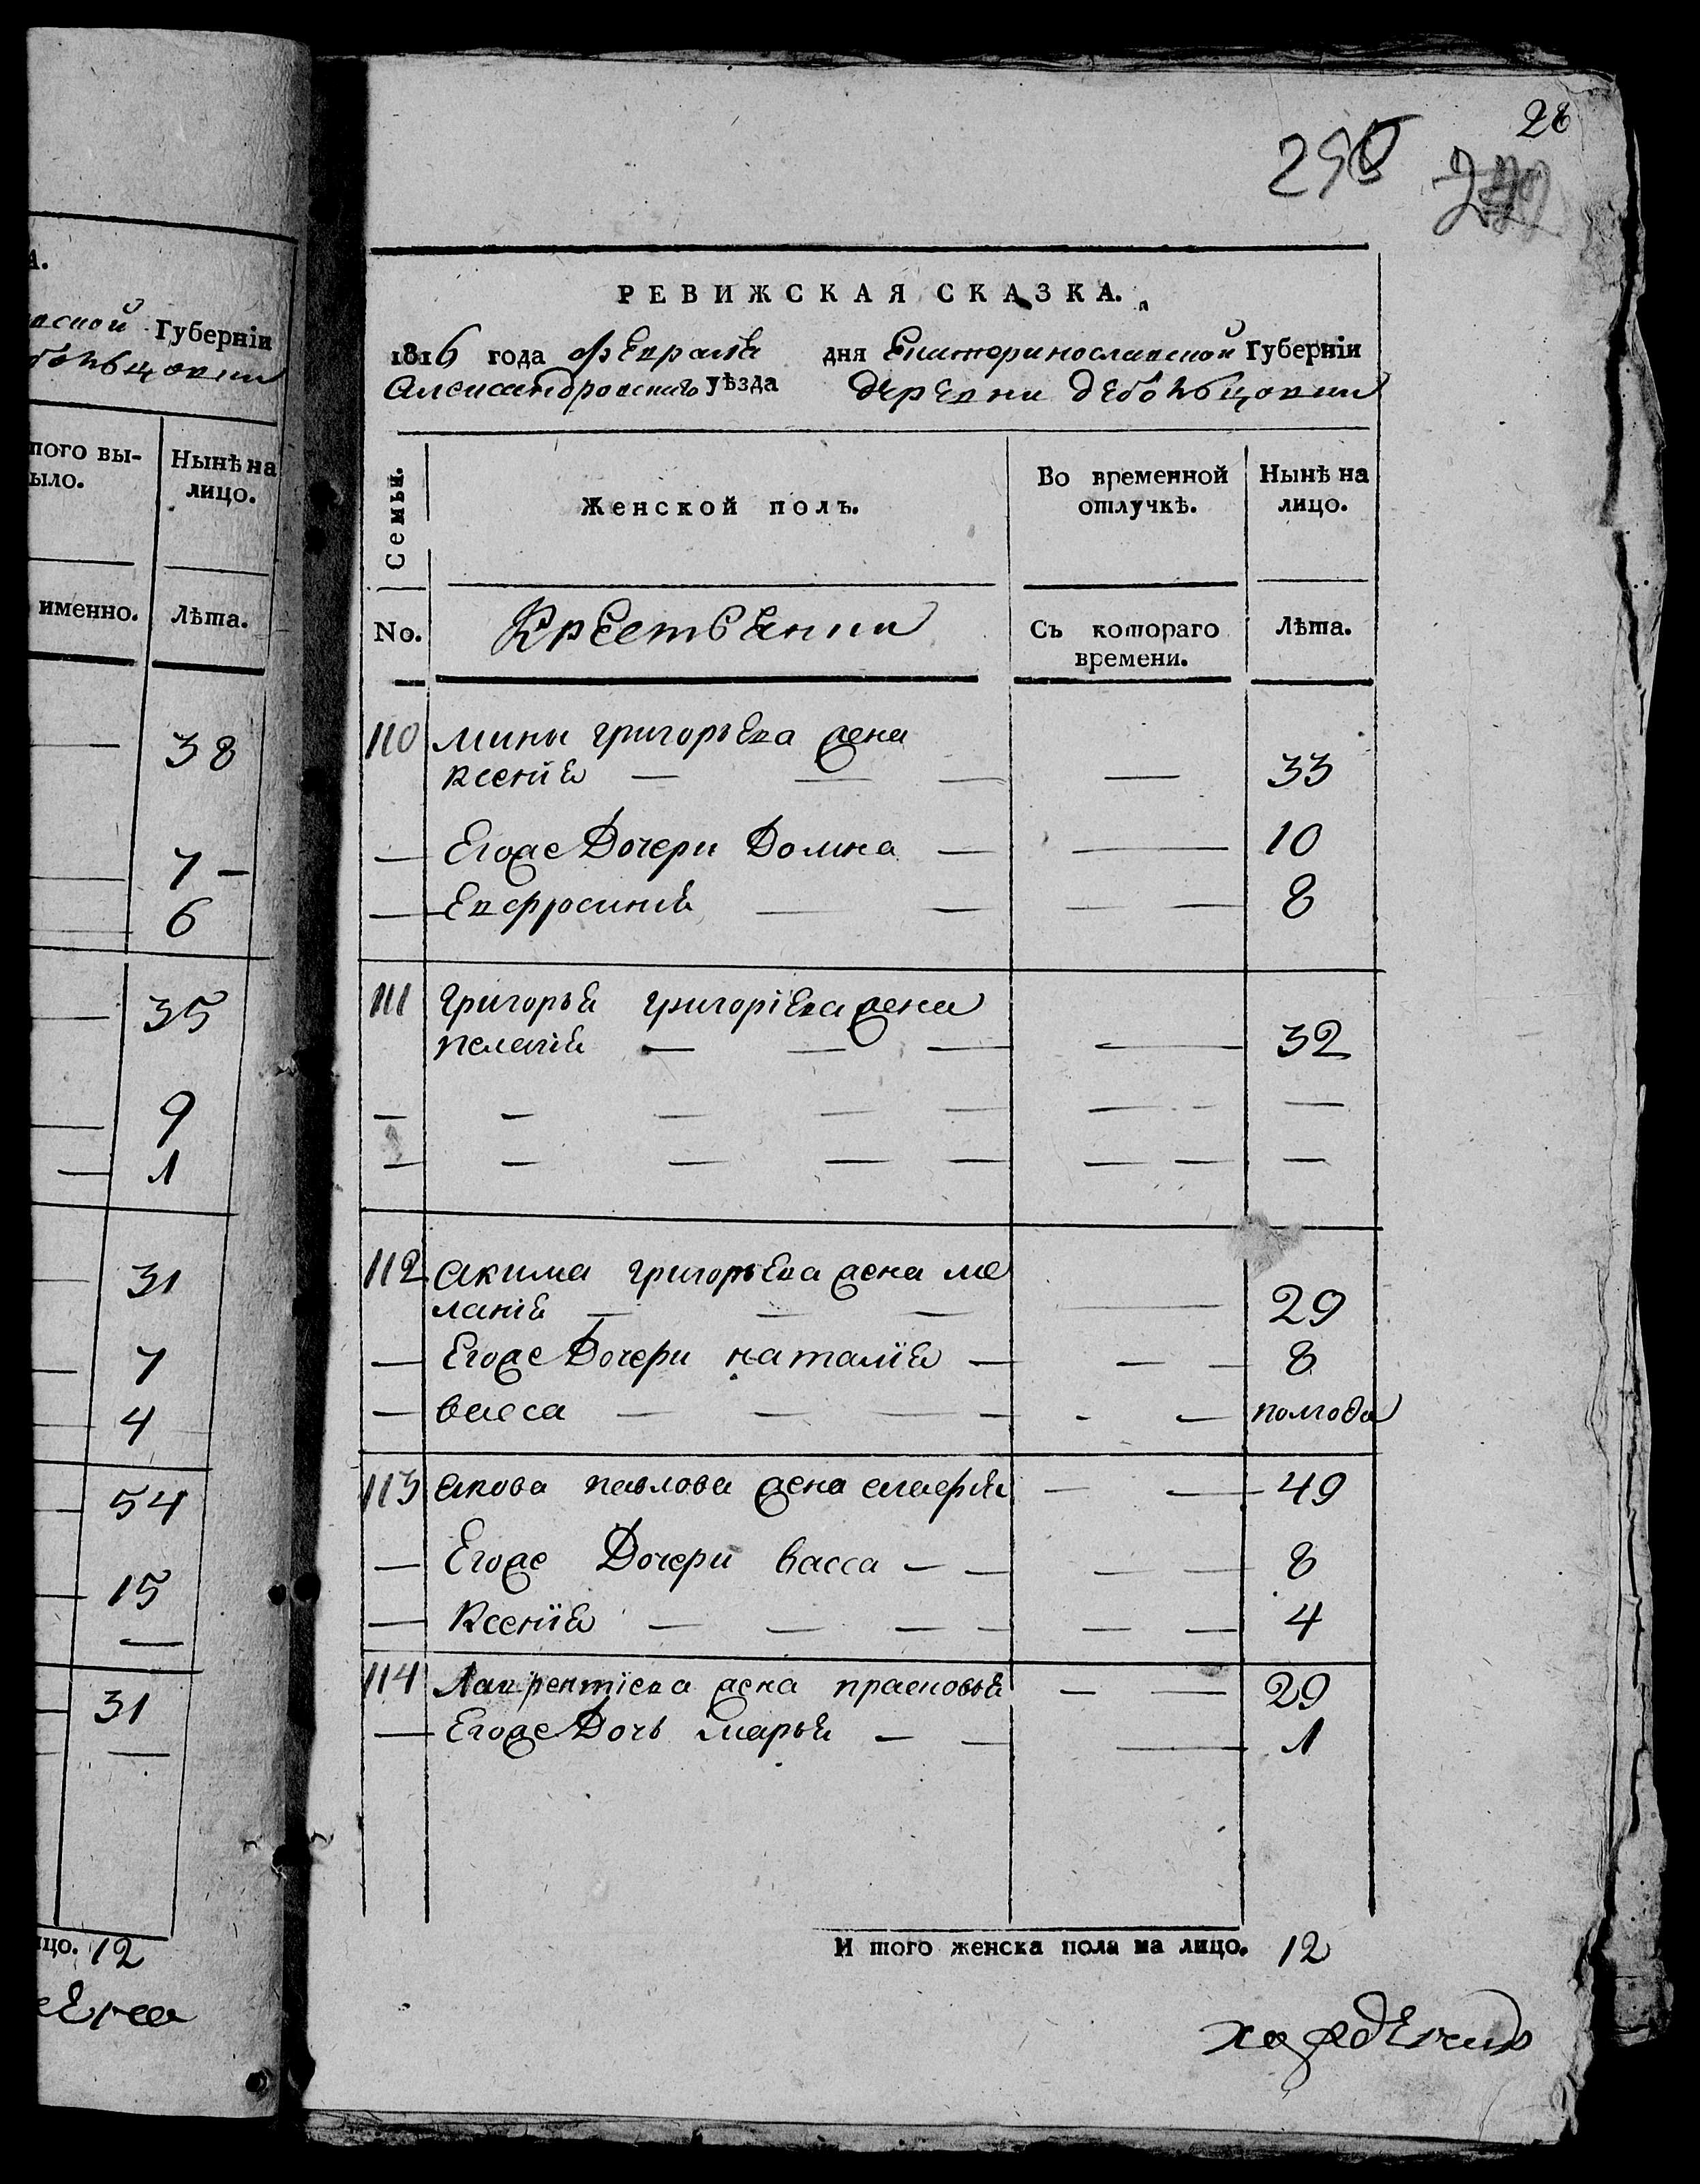 А.
Губерніи
пого вы-
ыло.
Нынѣ на
лицо.
именно.
Лѣта.
38
7
6
35
9
1
31
7
4
54
15
31
цо. 12
28
РЕВИЖСКАЯ СКАЗКА.
1816 года февраля дня Екатеринославской Губерніи
Александровскаго уѣзда деревни
Семьи.
Женской полъ.
Во временной
отлучкѣ.
Нынѣ на
лицо.
No.
Крестьянии
Съ котораго
времени.
Лѣта.
110 мины григорьева жена
ксенія — — — — 33
— Егоже Дочери Домна — — 10
— Евфросинія — — — — 8
111 григорья григоріева жена
пелагія — — — — 32
— — — — — — — —
— — — — — — — —
112 акима григорьева жена ме
ланія — — — — 29
— Егоже Дочери наталія — — — 8
— васса — — — — - — полгода
113 якова павлова жена — — 49
— Егоже Дочери васса — — — — 8
— Ксенія — — — — — — 4
114 Лаврентіева жена прасковья — — 29
— Егоже Дочь марья — — — 1
И того женска пола на лицо. 12